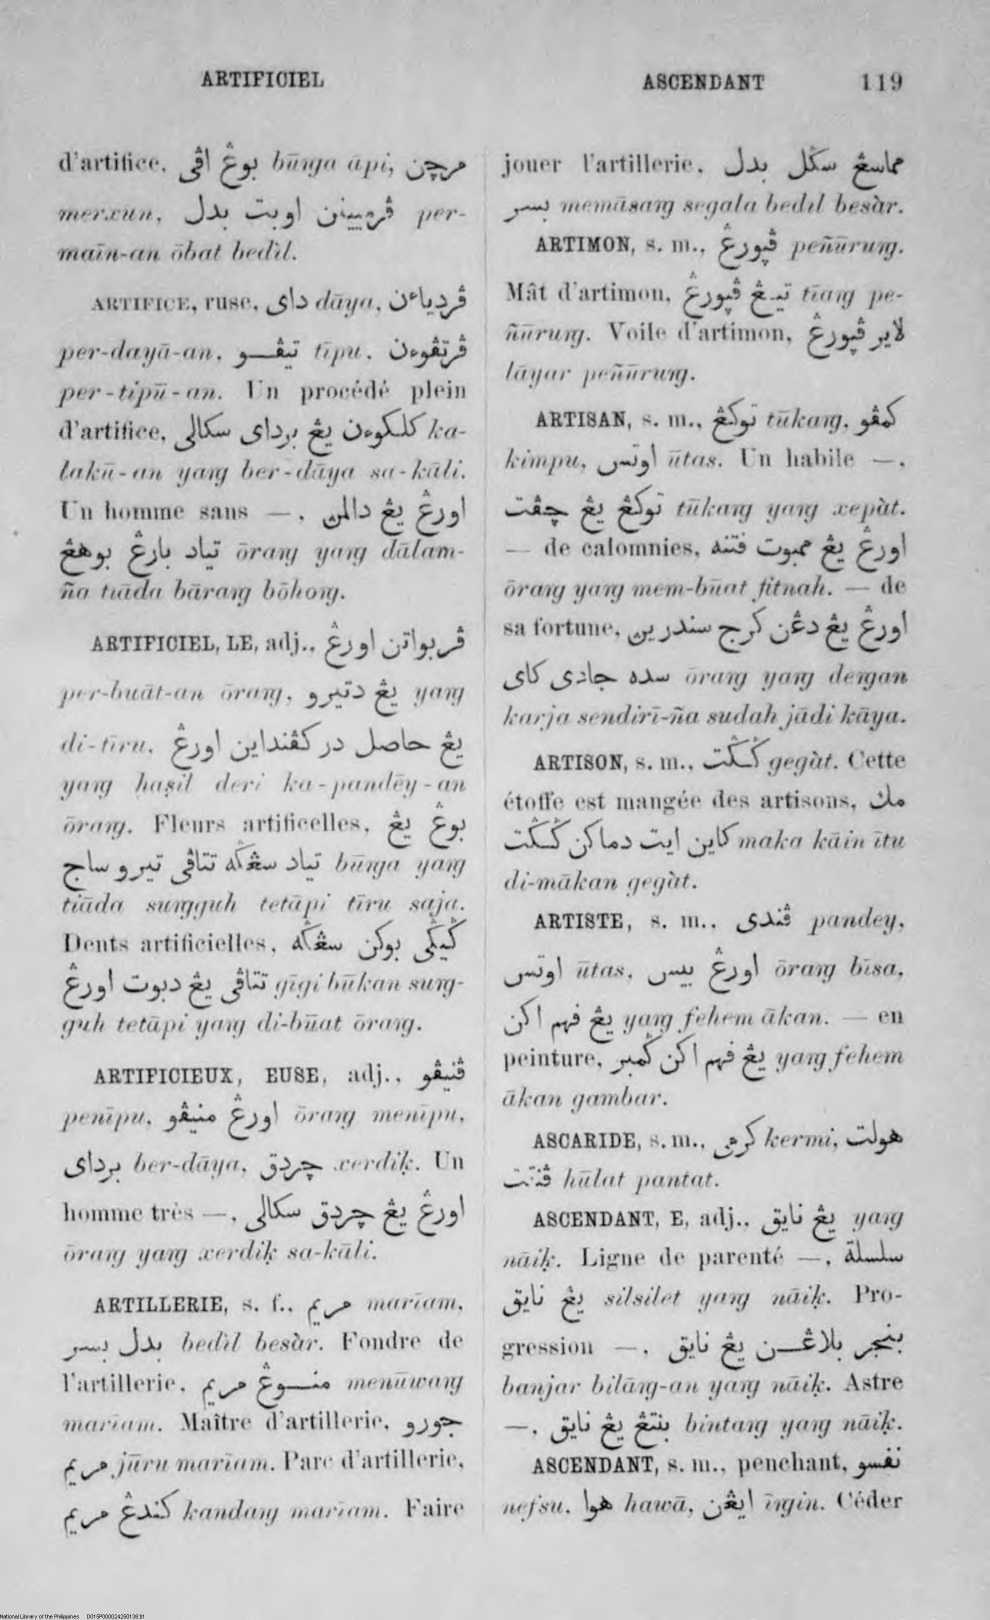 ARTIFICIEL
ASCENDANT 119
d'artifice, بوڠ اڤي būn͡ga āpi, مرچن
merxun, ڤرمييٖنن اوبت بدل per-
maīn-an ōbat bedìl.
ARTIFICE, ruse, داي dāya, ڤردياءن
per-dayā-an, تيڤــو tīpu, ڤرتڤوءن
per-tipū-an. Un procédé plein
d'artifice, كلاكوءن يڠ برداي سكالي ka-
lakū-an yan͡g ber-dāya sa-kāli.
Un homme sans —, اورڠ يڠ دالمن
تياد بارڠ بوهڠ ōran͡g yan͡g dālam-
ña tiāda bāran͡g bōhon͡g.
ARTIFICIEL, LE, adj., ڤربواتن اورڠ
per-buāt-an ōran͡g, يڠ دتيرو yan͡g
di-tīru, يڠ حاصل در كڤنداين اورڠ
yan͡g ḥaṣil deri ka-pandēy-an
ōran͡g. Fleurs artificelles, بوڠ يڠ
تياد سڠݢه تتاڤي تيرو ساج būn͡ga yan͡g
tiāda sun͡gguh tetāpi tīru saja.
Dents artificielles, ݢيݢي بوكن سڠݢه
تتاڤي يڠ دبوت اورڠ gīgi būkan sun͡g-
guh tetāpi yan͡g di-būat ōran͡g.
ARTIFICIEUX, EUSE, adj., ڤنيڤو
penīpu, اورڠ منيڤو ōran͡g menīpu,
برداي ber-dāya, چردق xerdiḳ. Un
homme très —, اورڠ يڠ چردق سكالي
ōran͡g yan͡g xerdiḳ sa-kāli.
ARTILLERIE, s. f., مريم marīam,
بدل بسر bedìl besàr. Fondre de
l'artillerie, منــوڠ مريم menūwan͡g
marīam. Maître d'artillerie, جورو
مريم jūru marīam. Parc d'artillerie,
كندڠ مريم kandan͡g marīam. Faire
jouer l'artillerie, مماسڠ سݢل بدل
بسر memāsan͡g segala bedìl besàr.
ARTIMON, s. m., ڤڽورڠ peñūrun͡g.
Mât d'artimon, تيـڠ ڤڽورڠ tīan͡g pe-
ñūrun͡g. Voile d'artimon, لاير ڤڽورڠ
lāyar peñūrun͡g.
ARTISAN, s. m., توكڠ tūkan͡g, كمڤو
kimpu, اوتس ūtas. Un habile —,
توكڠ يڠ چڤت tūkan͡g yan͡g xepàt.
— de calomnies, اورڠ يڠ ممبوت فتنه
ōran͡g yan͡g mem-būat fitnah. — de
sa fortune, اورڠ يڠ دڠن كرج سندرين
سده جادي كاي ōran͡g yan͡g den͡gan
karja sendirī-ña sudah jādi kāya.
ARTISON, s. m., ݢݢت gegàt. Cette
étoffe est mangée des artisons, مك
كاين ايت دماكن ݢݢت maka kāin ītu
di-mākan gegàt.
ARTISTE, s. m., ڤندي pandey,
اوتس ūtas, اورڠ بيس ōran͡g bīsa,
يڠ فهم اكن yan͡g fehem ākan. — en
peinture, يڠ فهم اكن ݢمبر yan͡g fehem
ākan gambar.
ASCARIDE, s. m., كرمي kermi, هولت
ڤنتت hūlat pantat.
ASCENDANT, E, adj., يڠ نايق yan͡g
nāiḳ. Ligne de parenté —, سلسلة
يڠ نايق silsilet yan͡g nāiḳ. Pro-
gression —, بنجر بلاڠــن يڠ نايق
banjar bilān͡g-an yan͡g nāiḳ. Astre
—, بنتڠ يڠ نايق bintan͡g yan͡g nāiḳ.
ASCENDANT, s. m., penchant, نفسو
nefsu, هوا hawā, ايڠن īn͡gin. Céder
National Library of the Philippines